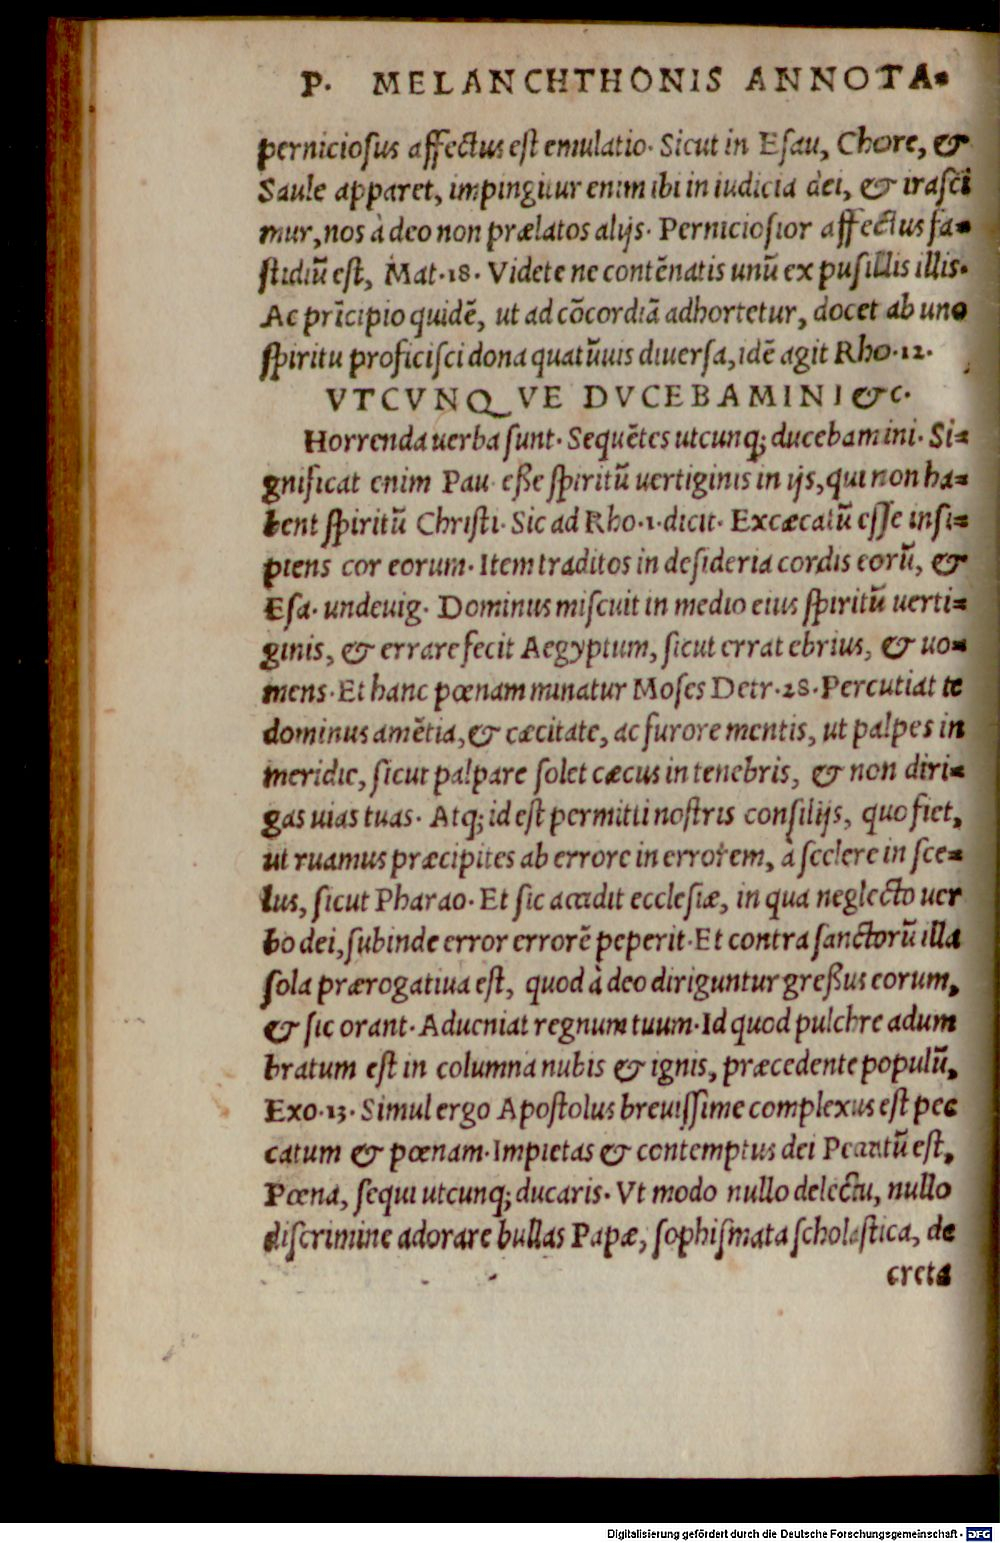 P. MELANCHTHONIS ANNOTA-
perniciosus affectus est emulatio. Sicut in Esau, Chore, &
Saule apparet, impingitur enim ibi in iudicia dei, & irasci
mur, nos à deo non prælatos alijs. Perniciosior affectus fa-
stidiũ est, Mat. 18. Videte ne contẽnatis unũ ex pusillis illis.
Ac prĩcipio quidẽ, ut ad cõcordiã adhortetur, docet ab uno
spiritu proficisci dona quatũuis diuersa, idẽ agit Rho. 12.
VTCVNQVE DVCEBAMINI &c.
Horrenda uerba sunt. Sequẽtes utcunq; ducebamini. Si-
gnificat enim Pau. eße spiritũ uertiginis in ijs, qui non ha-
bent spiritũ Christi. Sic ad Rho. 1. dicit. Excæcatũ esse insi-
piens cor eorum. Item traditos in desideria cordis eorũ, &
Esa. undeuig. Dominus miscuit in medio eius spiritũ uerti-
ginis, & errare fecit Aegyptum, sicut errat ebrius, & uo-
mens. Et hanc pœnam minatur Moses Detr. 28. Percutiat te
dominus amẽtia, & cæcitate, ac furore mentis, ut palpes in
meridie, sicut palpare solet cæcus in tenebris, & non diri-
gas uias tuas. Atq; id est permitti nostris consilijs, quo fiet,
ut ruamus præcipites ab errore in errorem, à scelere in sce-
lus, sicut Pharao. Et sic accidit ecclesiæ, in qua neglecto uer
bo dei, subinde error errorẽ peperit. Et contra sanctorũ illa
sola prærogatiua est, quod à deo diriguntur greßus eorum,
& sic orant. Adueniat regnum tuum. Id quod pulchre adum
bratum est in columna nubis & ignis, præcedente populũ,
Exo. 13. Simul ergo Apostolus breuissime complexus est pec
catum & pœnam. Impietas & contemptus dei Peccatũ est,
Pœna, sequi utcunq; ducaris. Vt modo nullo delectu, nullo
discrimine adorare bullas Papæ, sophismata scholastica, de
creta
Digitalisierung gefördert durch die Deutsche Forschungsgemeinschaft - DFG